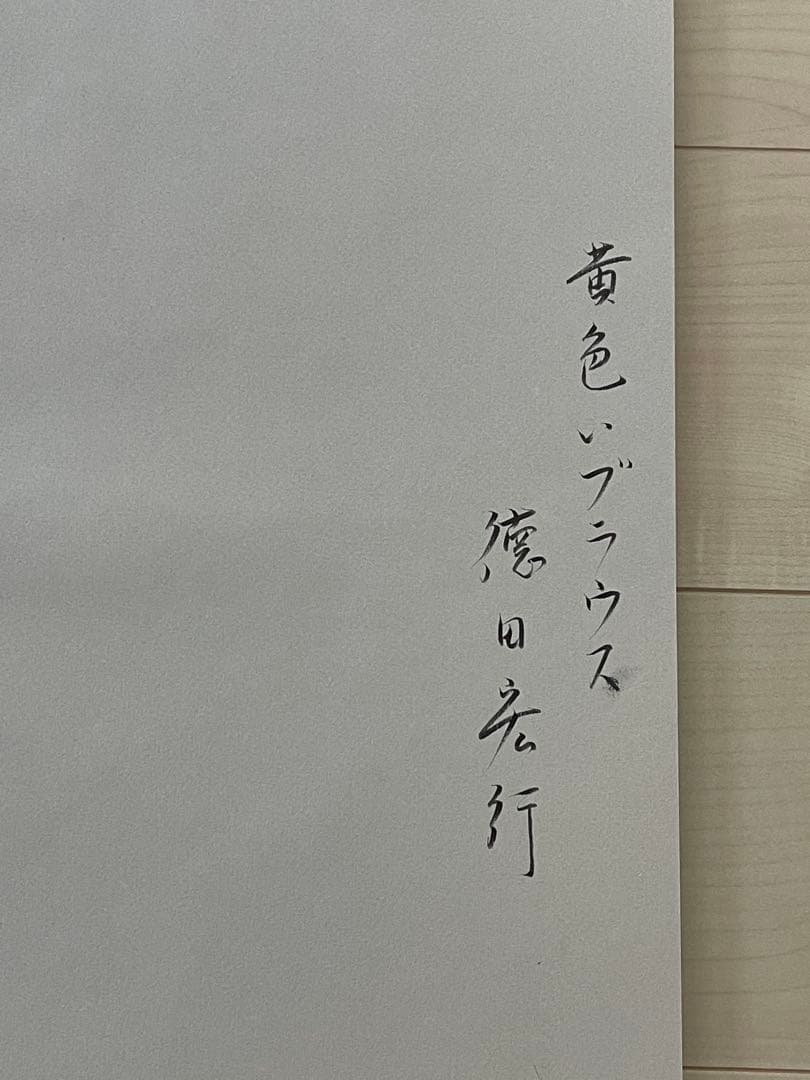 黄色いブラウス
德田宏行